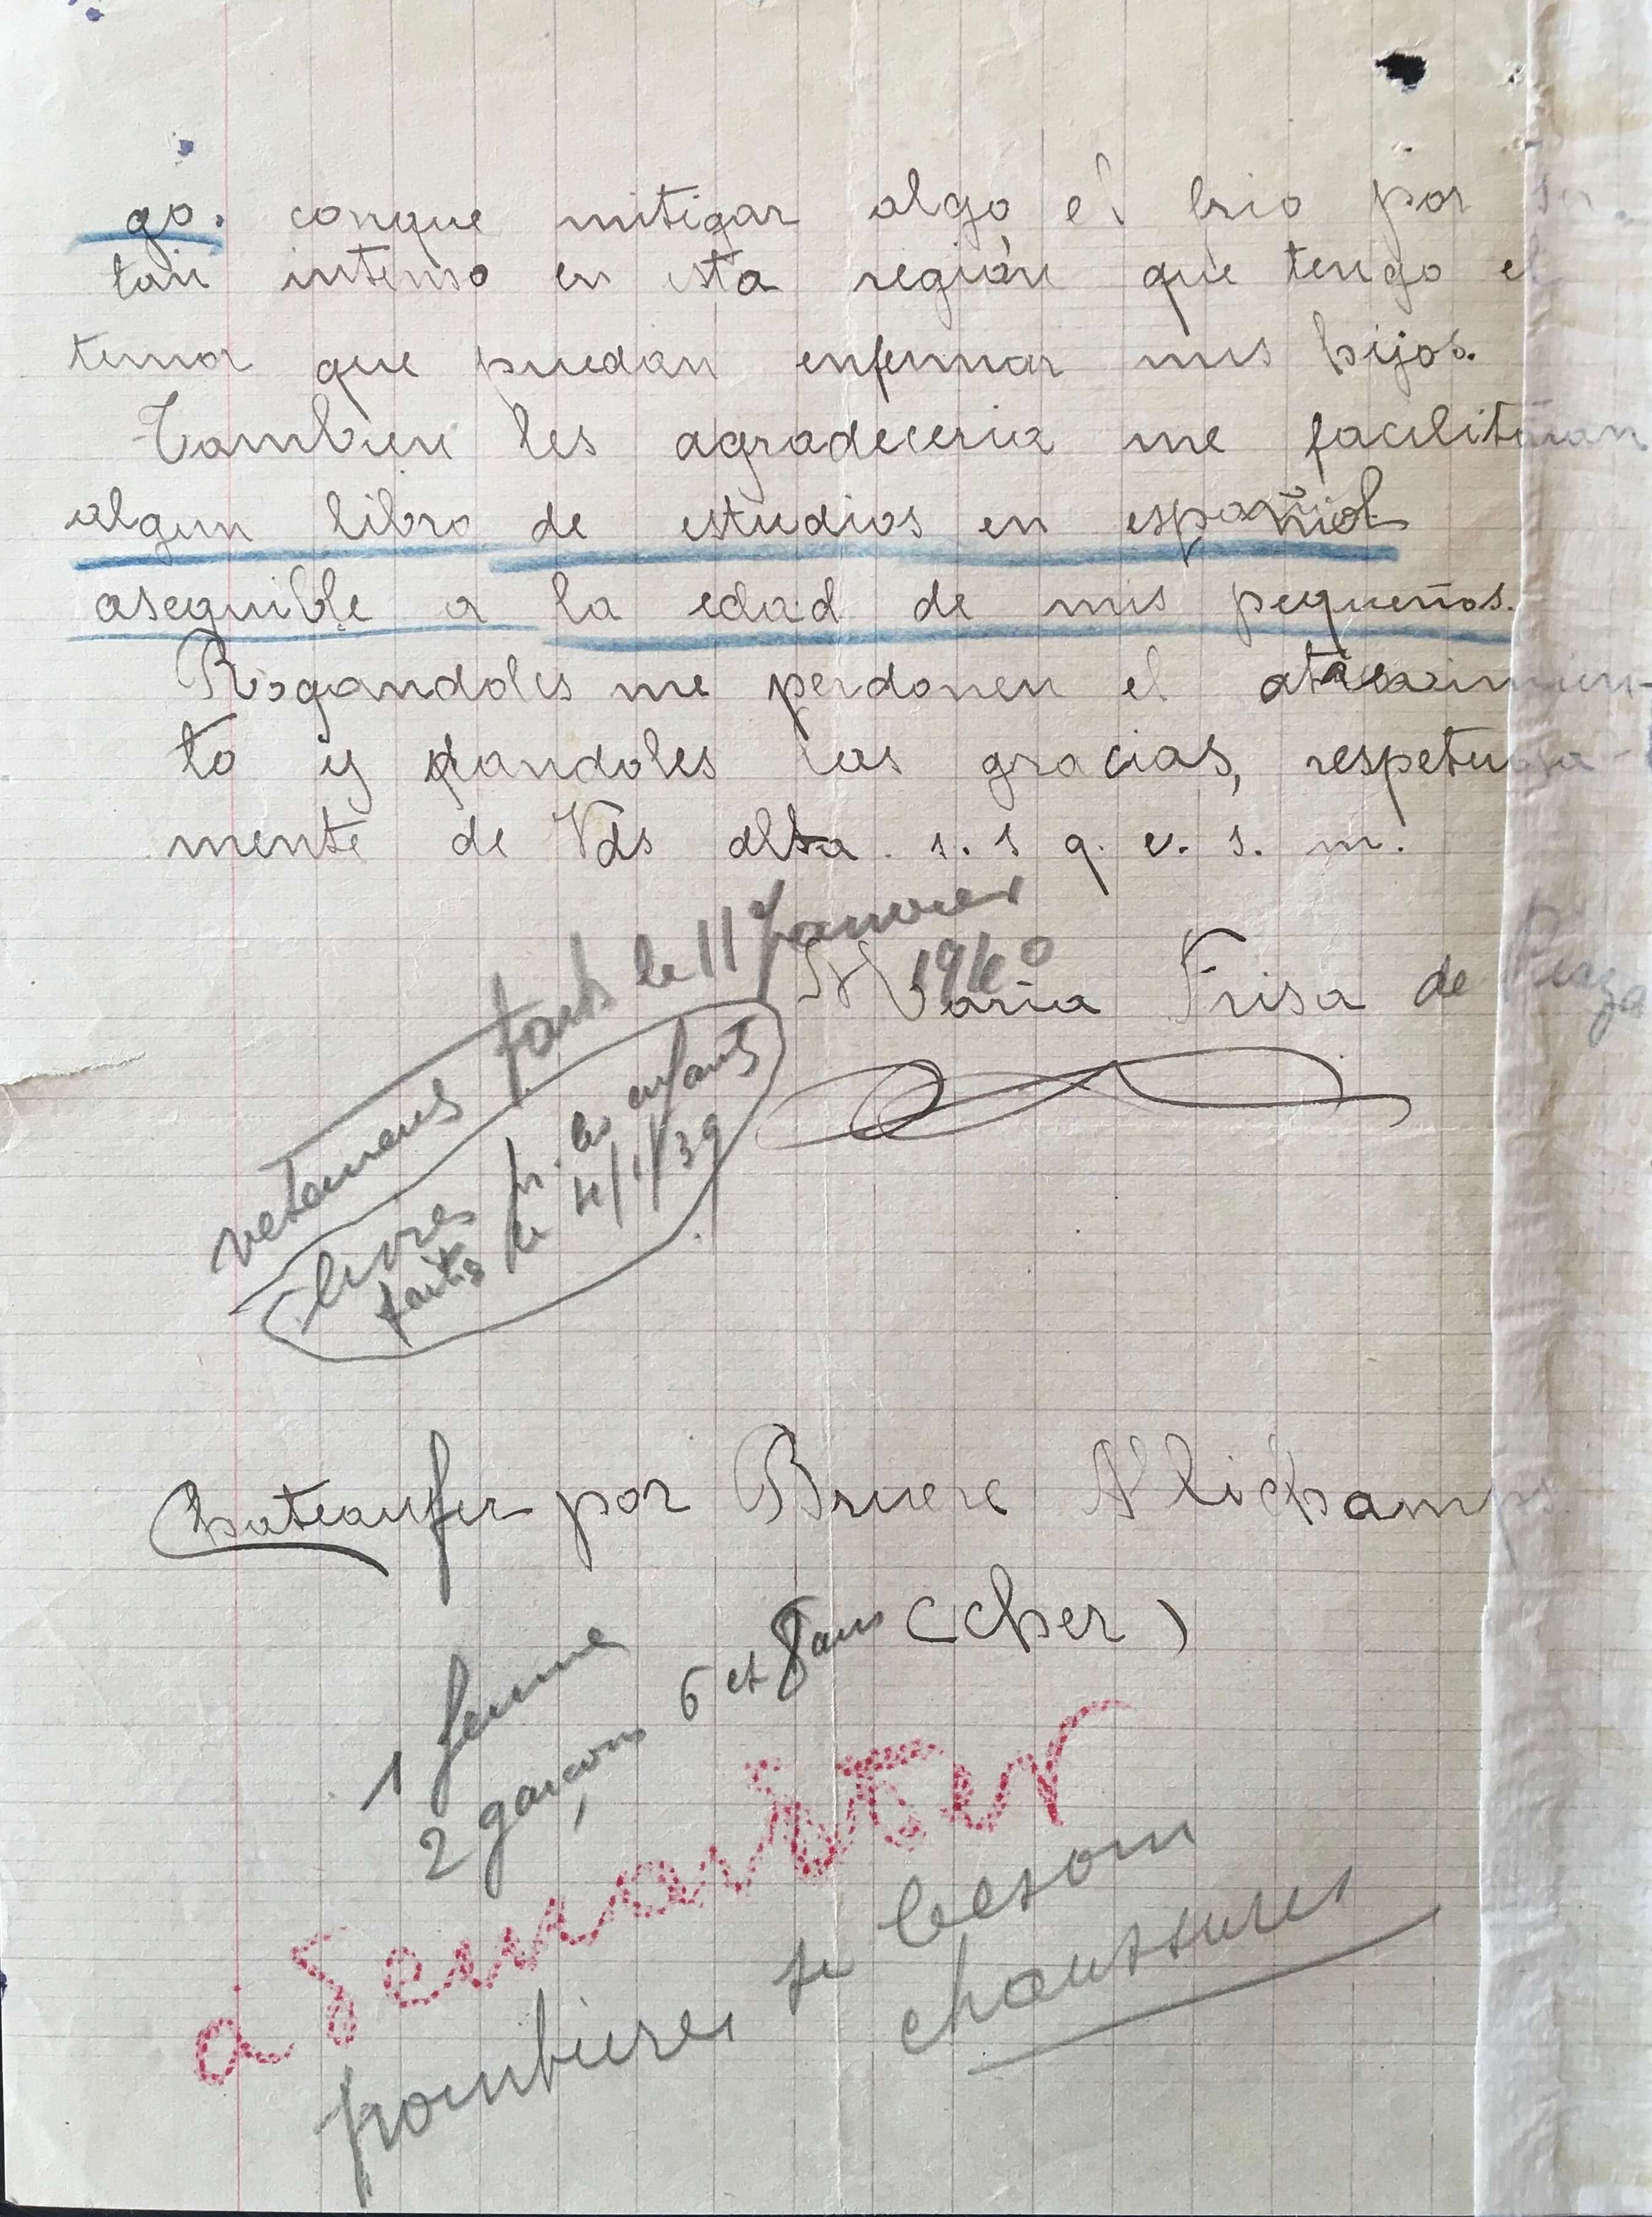 go. conque mitigar algo el frio por ser
tan intenso en esta región que tengo el
temor que puedan enfermar mis hijos.
Tambien les agradeceria me facilitaran
algun libro de estudios en español
asequible a la edad de mis pequeños.
Rogandoles me perdonen el atrevimien-
to y dandoles las gracias, respetuosa-
mente de Vds atta. s. s q. e. s. m.
vetements faits le 11 Janvier
1940
Maria Frisa de
livres pr. les enfants
faits le 4/1/39
Chateaufer por Bruere Allichamps
(cher)
1 femme
2 garçons 6 et 8 ans
a
pointures
besoin
chaussures